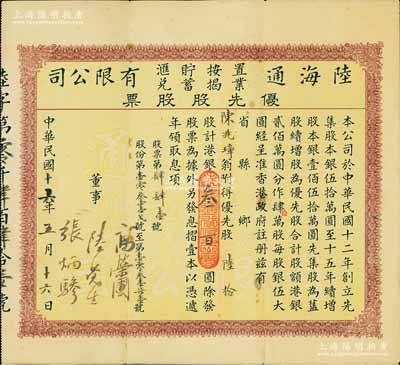 上海陽明拍賣
陸海通置業按揭貯蓄滙兌有限公司
優先股股票
本公司於中華民國十二年創立先
集股本伍拾萬圓至十五年續增
股本壹佰伍拾萬圓先集股為舊
股續增股為優先股合計股額港銀
貳佰萬圓分作肆萬股每股銀伍大
圓經呈准香港政府註册茲有
省 縣 鄉
附得優先股 陸拾
股計港銀 叁百 圓除發
股票為據外另發息摺壹本以憑遞
年領取息項
股票第 肆肆壹 號
董事
張炳驂
中華民國十 年 五 月 十六 日